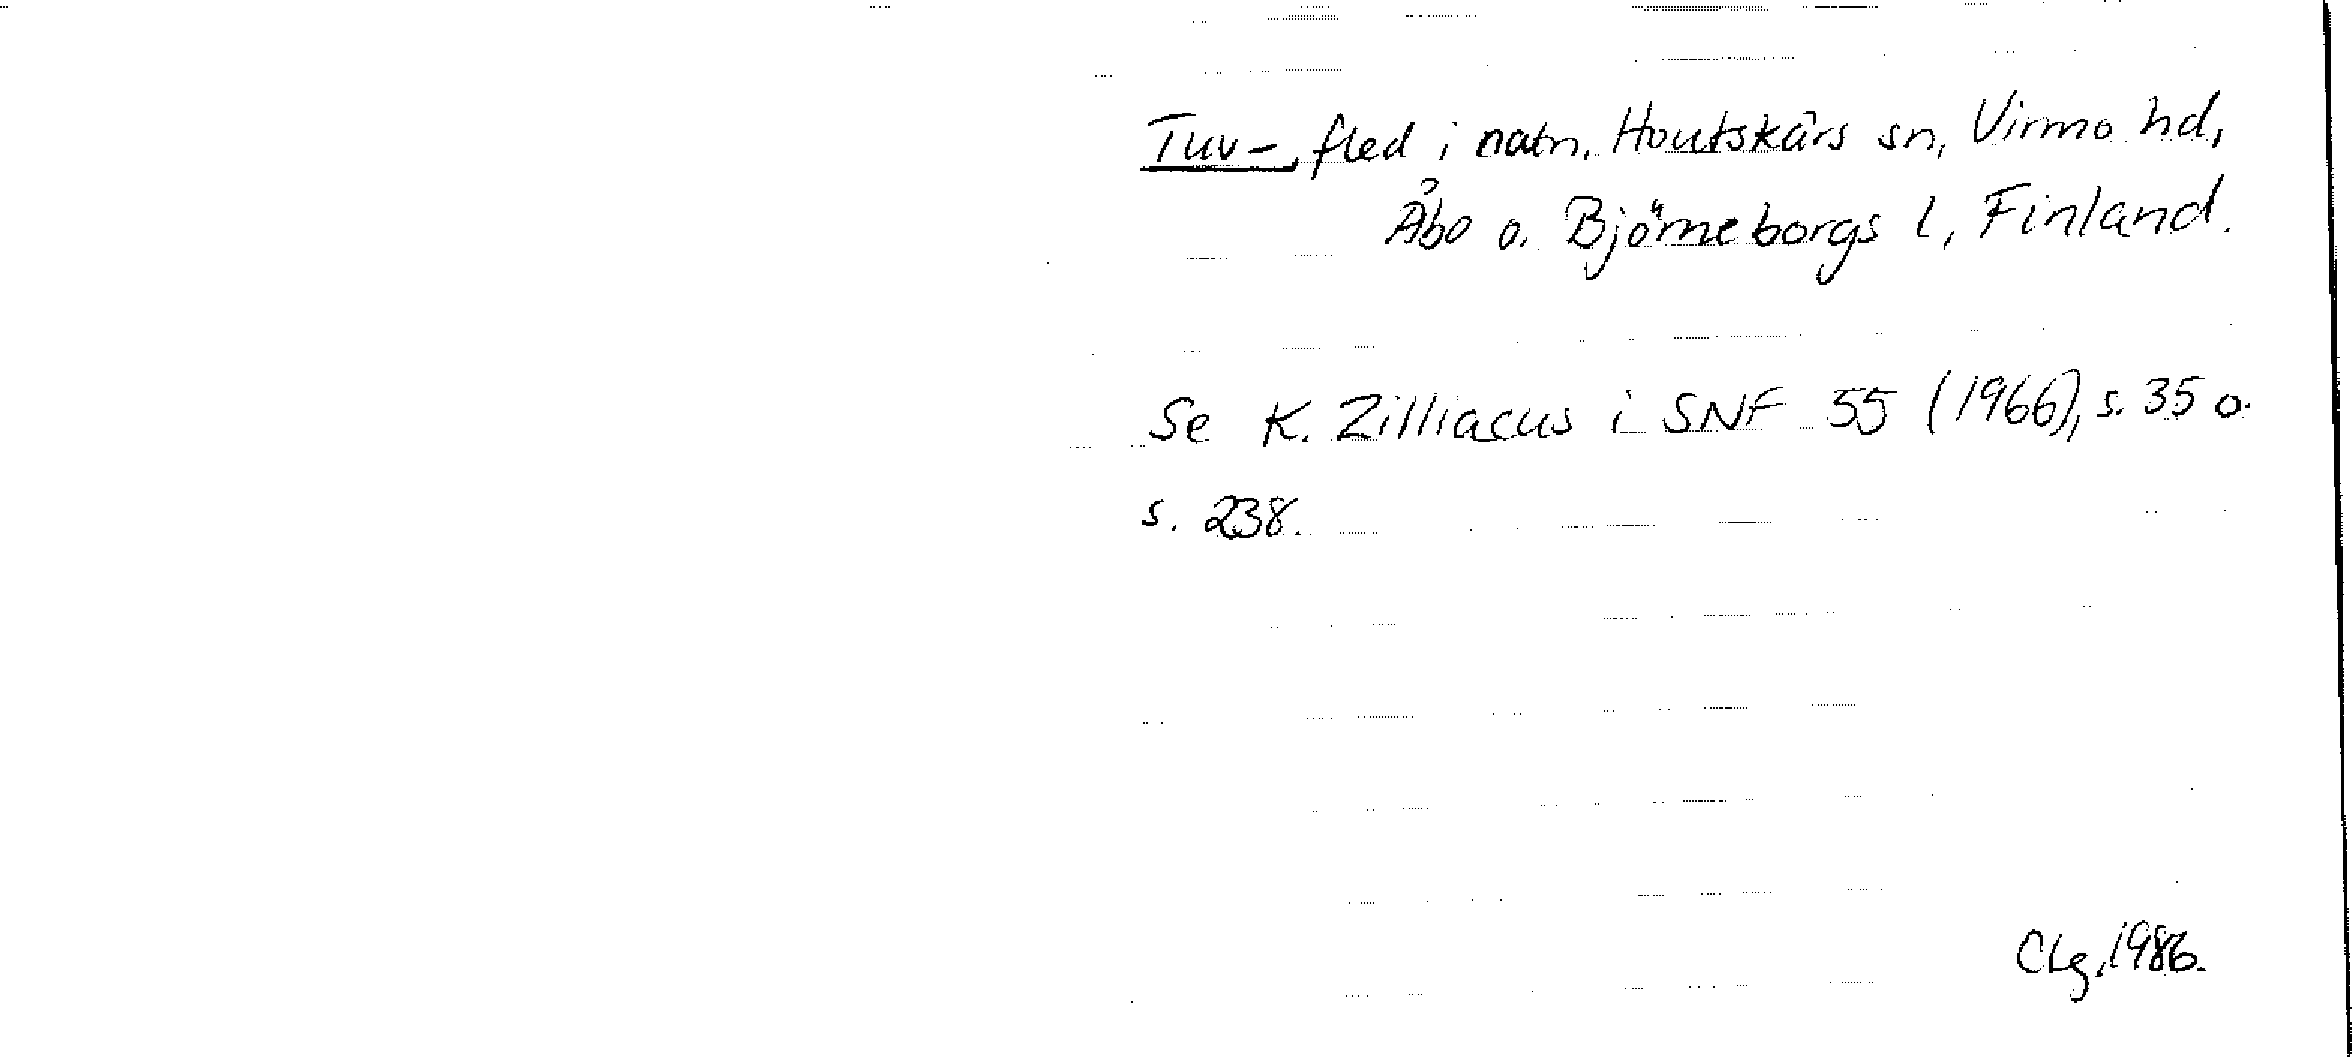 Tuv-, fled i natn. Houtskärs sn, Virmo hd,
Åbo o. Björneborgs l, Finland.
Se K. Zilliacus i SNF 55 (1966), s. 35 o.
s. 238.
CLg, 1986.